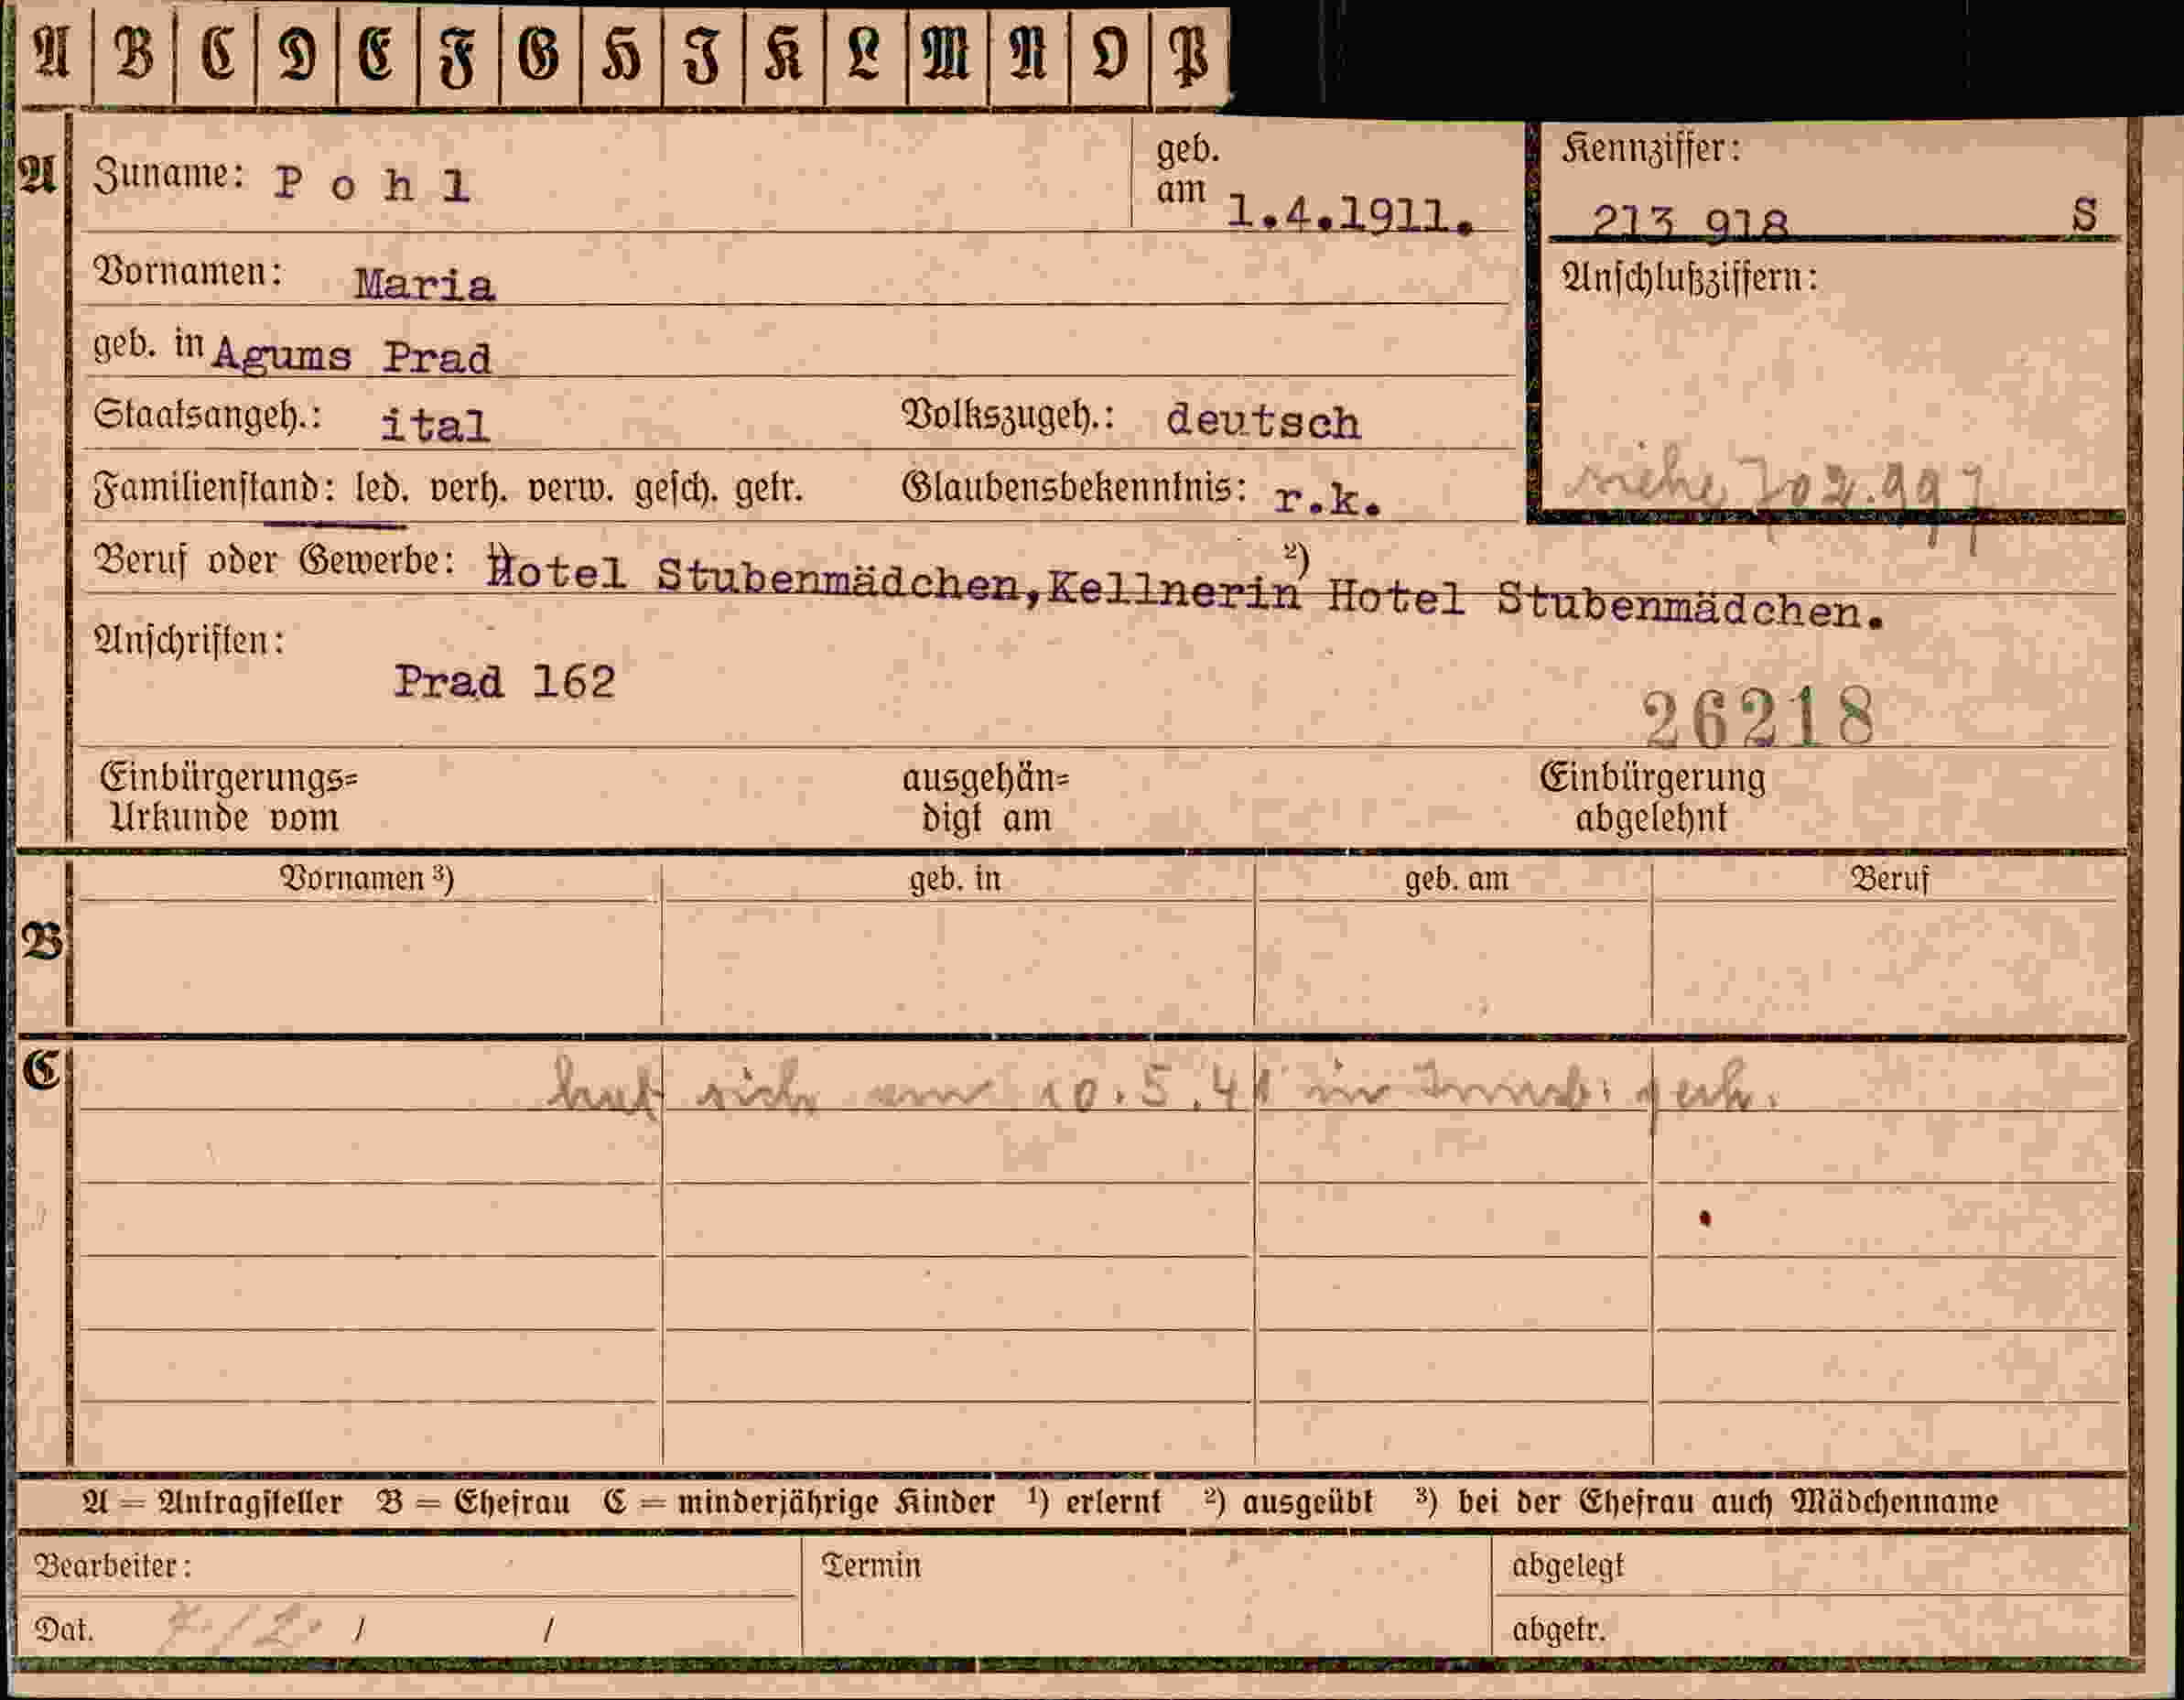 A B C D E F G H I K L M N O P
A
Zuname: Pohl
geb. am 1.4.1911.
Kennziffer:
213 918 S
Vornamen: Maria
Anschlußziffern:
geb. in Agums Prad
Staatsangeh.: ital Volkszugeh.: deutsch
Familienstand: led. verh. verw. gesch. getr. Glaubensbekenntnis: r.k.
siehe 702.997
Beruf oder Gewerbe: 1) Hotel Stubenmädchen,Kellnerin 2) Hotel Stubenmädchen.
Anschriften:
Prad 162
26218
Einbürgerungs=
Urkunde vom
ausgehän=
digt am
Einbürgerung
abgelehnt
B
Vornamen 3) geb. in geb. am Beruf
C
hat sich am 10.5.41 in Innsb. verh.
A = Antragsteller B = Ehefrau C = minderjährige Kinder 1) erlernt 2) ausgeübt 3) bei der Ehefrau auch Mädchenname
Bearbeiter: Termin abgelegt
Dat. 7./2. / / abgetr.